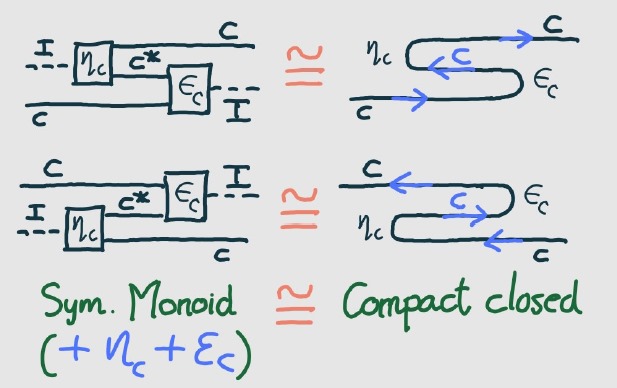 C
I
η_c
C*
ϵ_c
I
C
≅
C
η_c
C
ϵ_c
C
C
ϵ_c
I
C*
I
η_c
C
≅
C
ϵ_c
C
η_c
C
Sym. Monoid ≅ Compact closed
(+ η_c + ε_c)